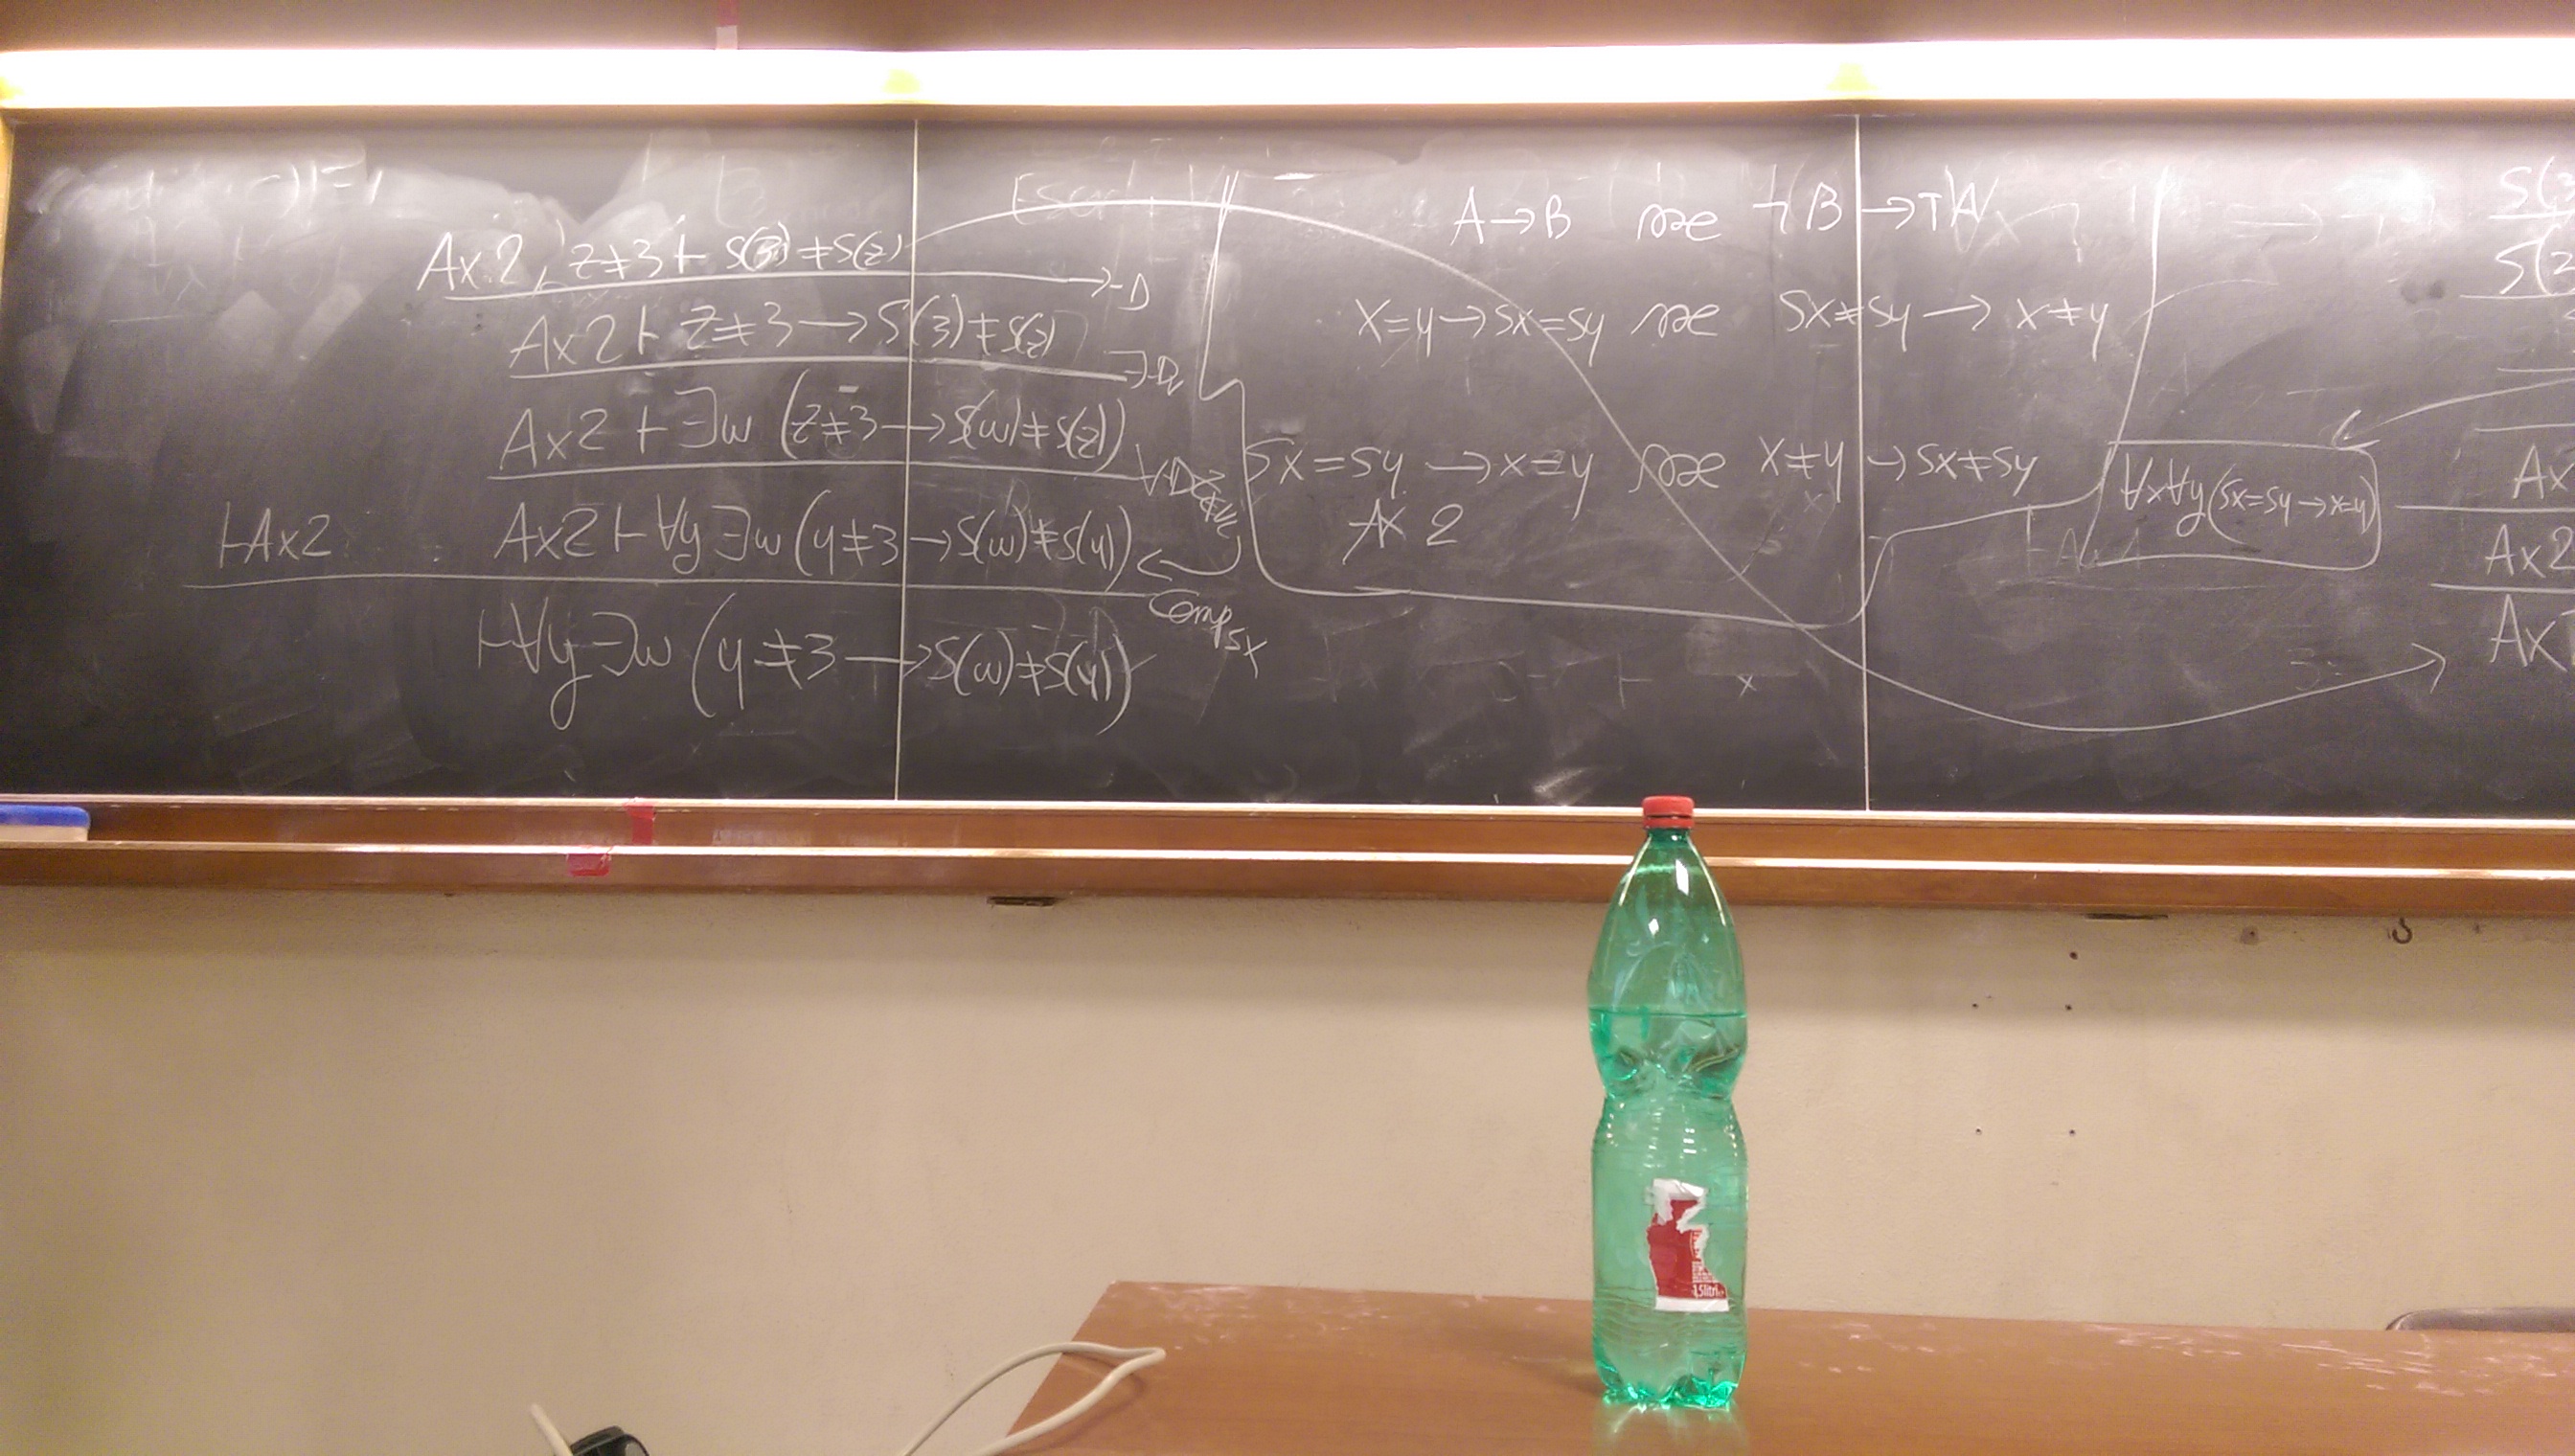 Ax.2, z≠3 ⊢ S(3)≠S(z)
→-D
Ax2 ⊢ z≠3 → S(3)≠S(z)
∃-D
Ax2 ⊢ ∃w (z≠3 → S(w)≠S(z))
∀-D
⊢Ax2 Ax2 ⊢ ∀y ∃w (y≠3 → S(w)≠S(y))
comp sx
⊢∀y ∃w (y≠3 → S(w)≠S(y))
A→B sse ¬B → ¬A
x=y → sx=sy sse sx≠sy → x≠y
sx=sy → x=y sse x≠y → sx≠sy
Ax 2
∀x∀y(sx=sy → x=y)
Ax
Ax2
Ax
1,5litri